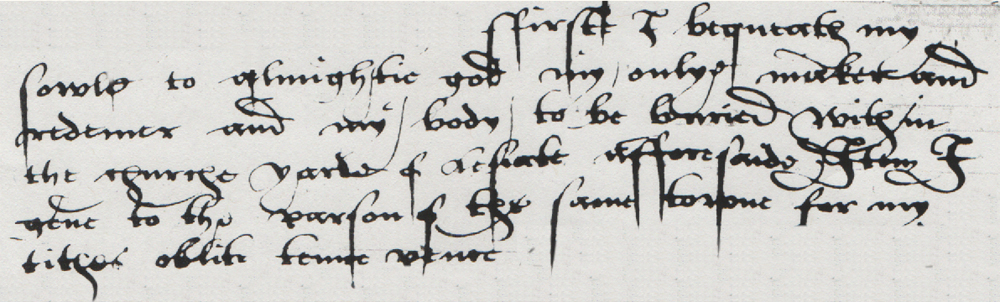 ffirste I bequeath my
sowle to almightie god my onlye maker and
redemer and my body to be buried within
the churche yarde of afforesaide Item I
geve to the parson of the same towne for my
tithes oblite tenne pence